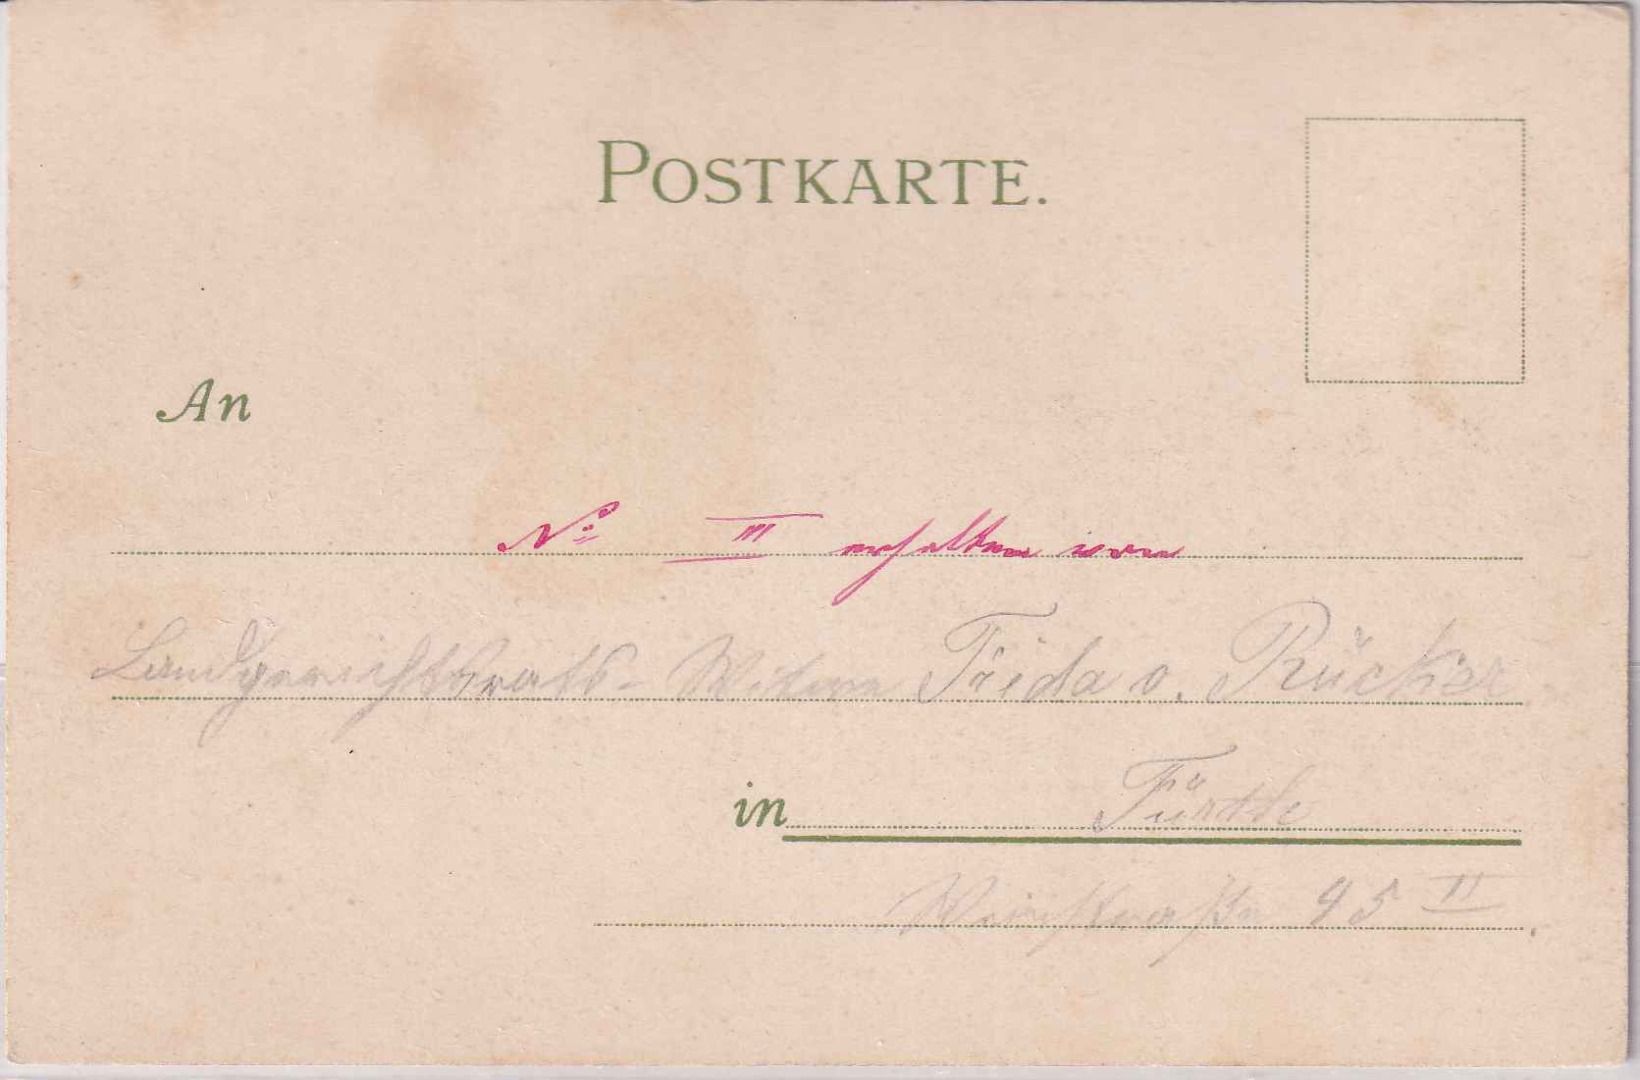 POSTKARTE.
An
No III erhalten von
Landgerichtsrats-Witwe Frida v. Rücker
in Fürth
95 II